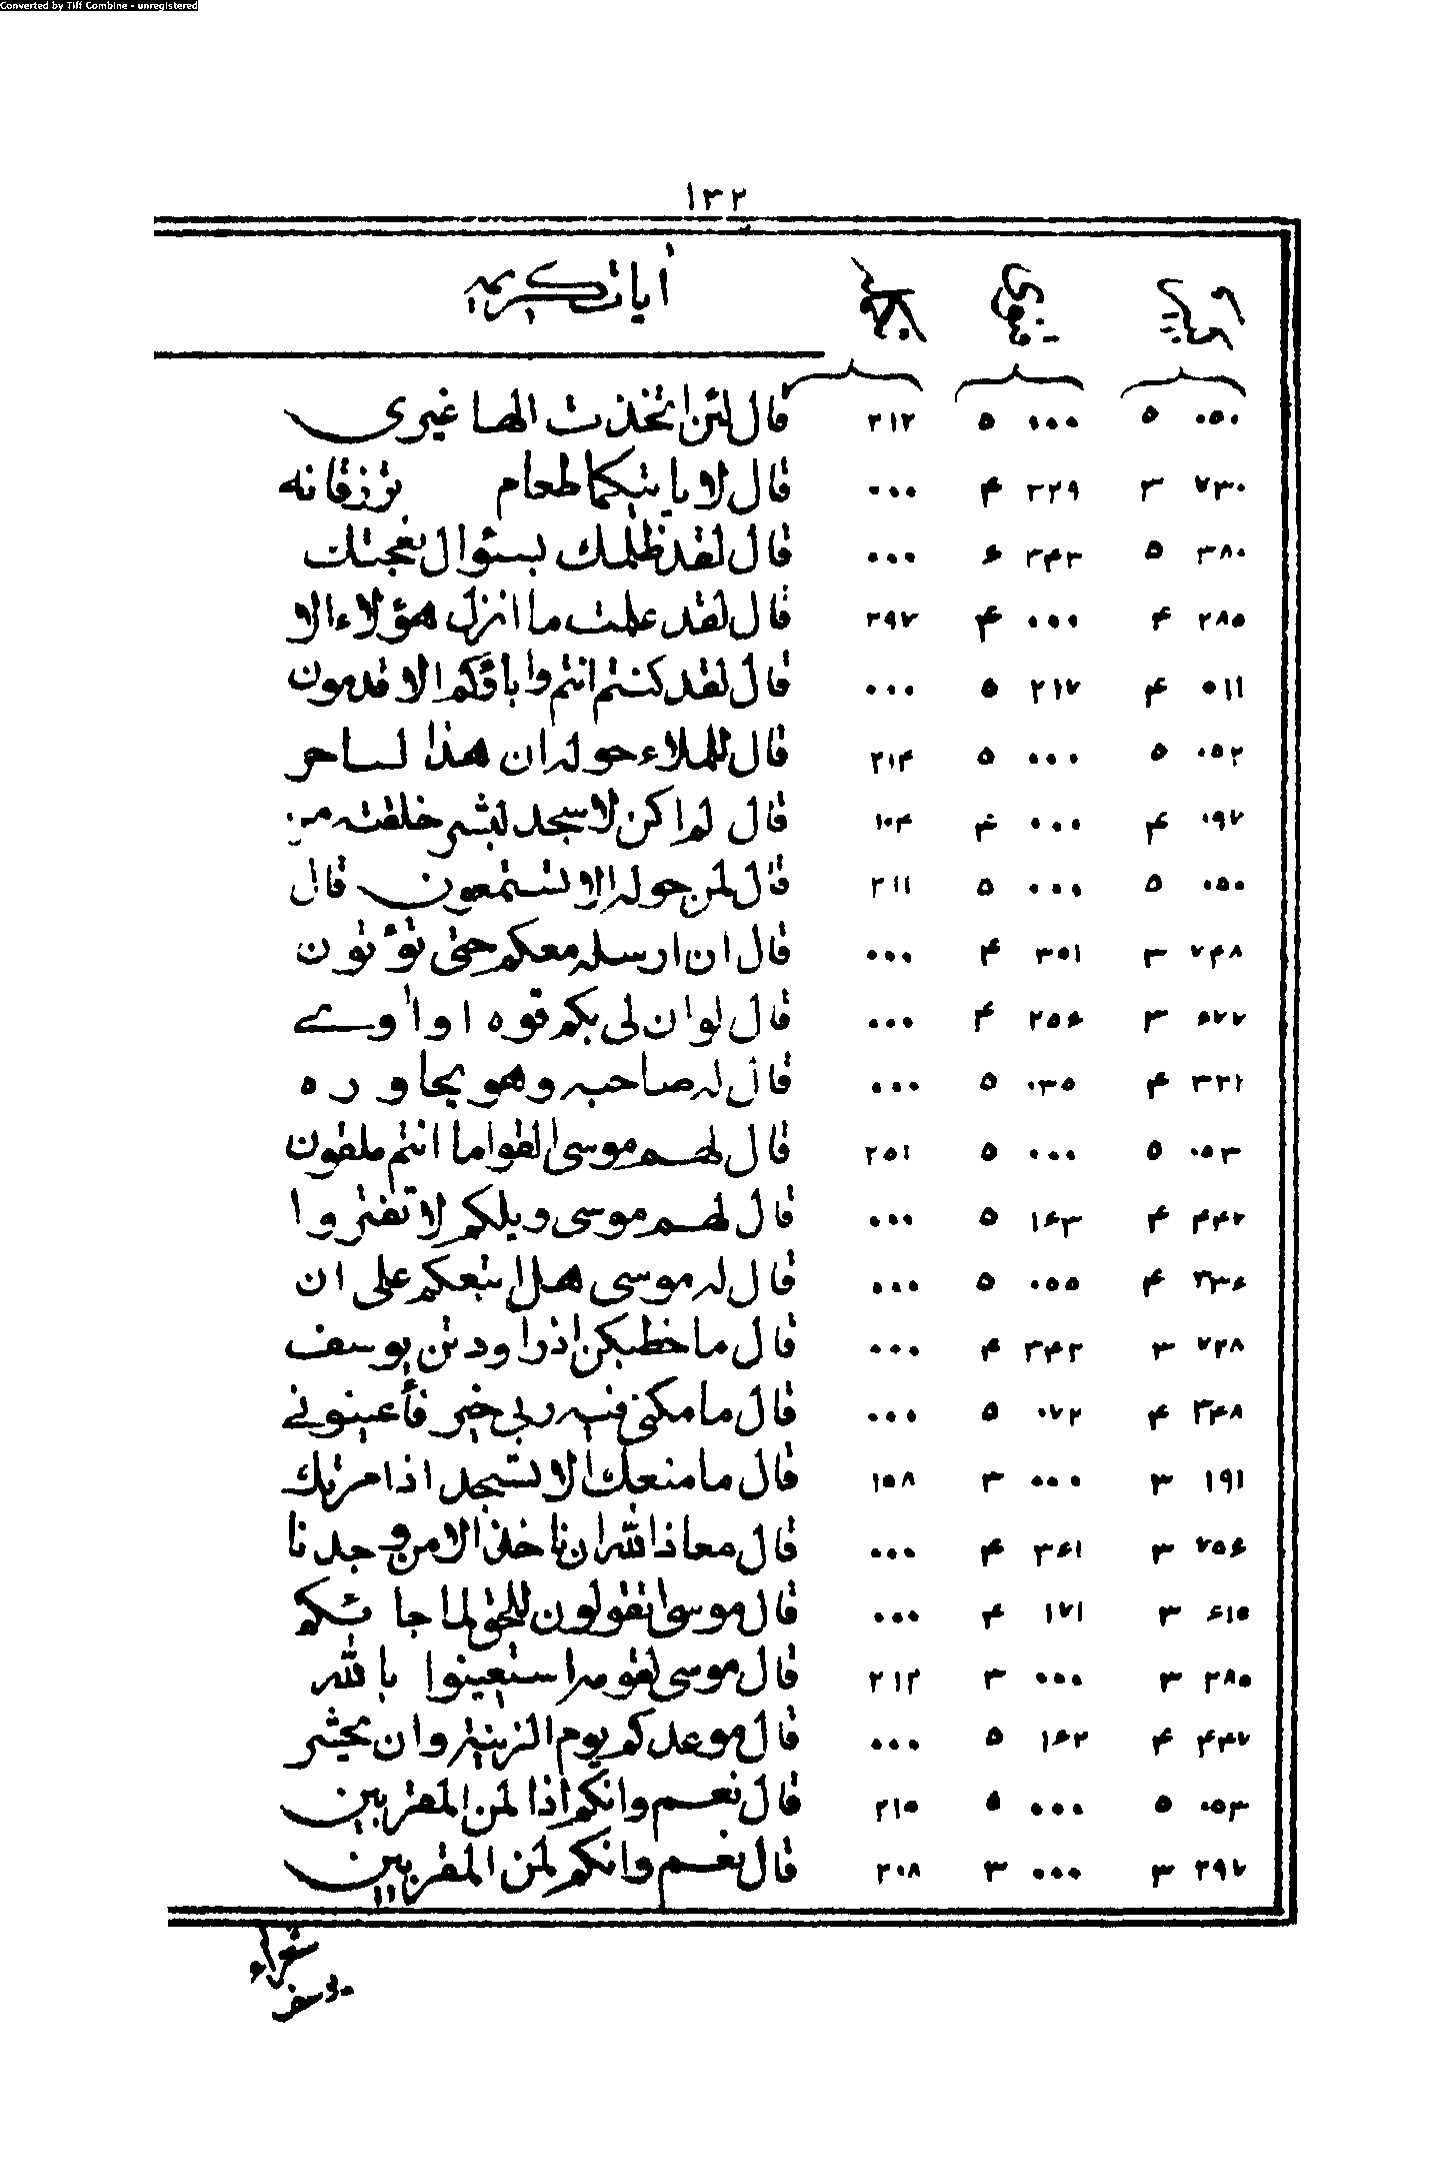 Converted by Tiff Combine - unregistered
١٣٢
آيات كريمه
٠٥٠ ٥ ٠٠٠ ٥ ٢١٢ قال لئن اتخذت الها غيرى
٧٣٠ ٣ ٣٢٩ ۴ ٠٠٠ قال لا ياتيكما طعام ترزقانه
٣٨٠ ٥ ٣۴٣ ۶ ٠٠٠ قال لقد ظلمك بسئوال نعجتك
٢٨٥ ۴ ٠٠٠ ۴ ٣٩٧ قال لقد علمت ما انزل هؤلاء الا
٥١١ ۴ ٢١٧ ٥ ٠٠٠ قال لقد كنتم انتم واباؤكم الاقدمون
٠٥٢ ٥ ٠٠٠ ٥ ٢١۴ قال للملاء حوله ان هذا لساحر
٠٩٧ ۴ ٠٠٠ ۴ ١٠۴ قال لم اكن لاسجد لبشر خلقته من
٠٥٠ ٥ ٠٠٠ ٥ ٢١١ قال لمن حوله الا تستمعون قال
٧۴٨ ٣ ٣٥١ ۴ ٠٠٠ قال ان ارسله معكم حتى تؤتون
۶٧٧ ٣ ٢٥۶ ۴ ٠٠٠ قال لو ان لى بكم قوه او اوى
٣٢١ ۴ ٠٣٥ ٥ ٠٠٠ قال له صاحبه وهو يحاوره
٠٥٣ ٥ ٠٠٠ ٥ ٢٥١ قال لهم موسى القوا ما انتم ملقون
۴۴٧ ۴ ١۶٣ ٥ ٠٠٠ قال لهم موسى ويلكم لا تفتروا
٣٣۶ ۴ ٠٥٥ ٥ ٠٠٠ قال له موسى هل اتبعكم على ان
٧٣٨ ٣ ٣۴٢ ۴ ٠٠٠ قال ما خطبكن اذ راودتن يوسف
٣۴٨ ۴ ٠٧٢ ٥ ٠٠٠ قال ما مكنى فيه ربى خير فأعينونى
١٩١ ٣ ٠٠٠ ٣ ١٥٨ قال ما منعك الا تسجد اذ امرتك
٧٥۶ ٣ ٣۶١ ۴ ٠٠٠ قال معاذ الله ان ناخذ الا من وجدنا
۶١٥ ٣ ١٧١ ۴ ٠٠٠ قال موسى اتقولون للحق لما جائكم
٢٨٥ ٣ ٠٠٠ ٣ ٢١٢ قال موسى لقومه استعينوا بالله
۴۴٧ ۴ ١۶٢ ٥ ٠٠٠ قال موعدكم يوم الزينة وان يحشر
٠٥٣ ٥ ٠٠٠ ٥ ٢١٥ قال نعم وانكم اذا لمن المقربين
٢٩٧ ٣ ٠٠٠ ٣ ٢٠٨ قال نعم وانكم لمن المقربين
شعراء